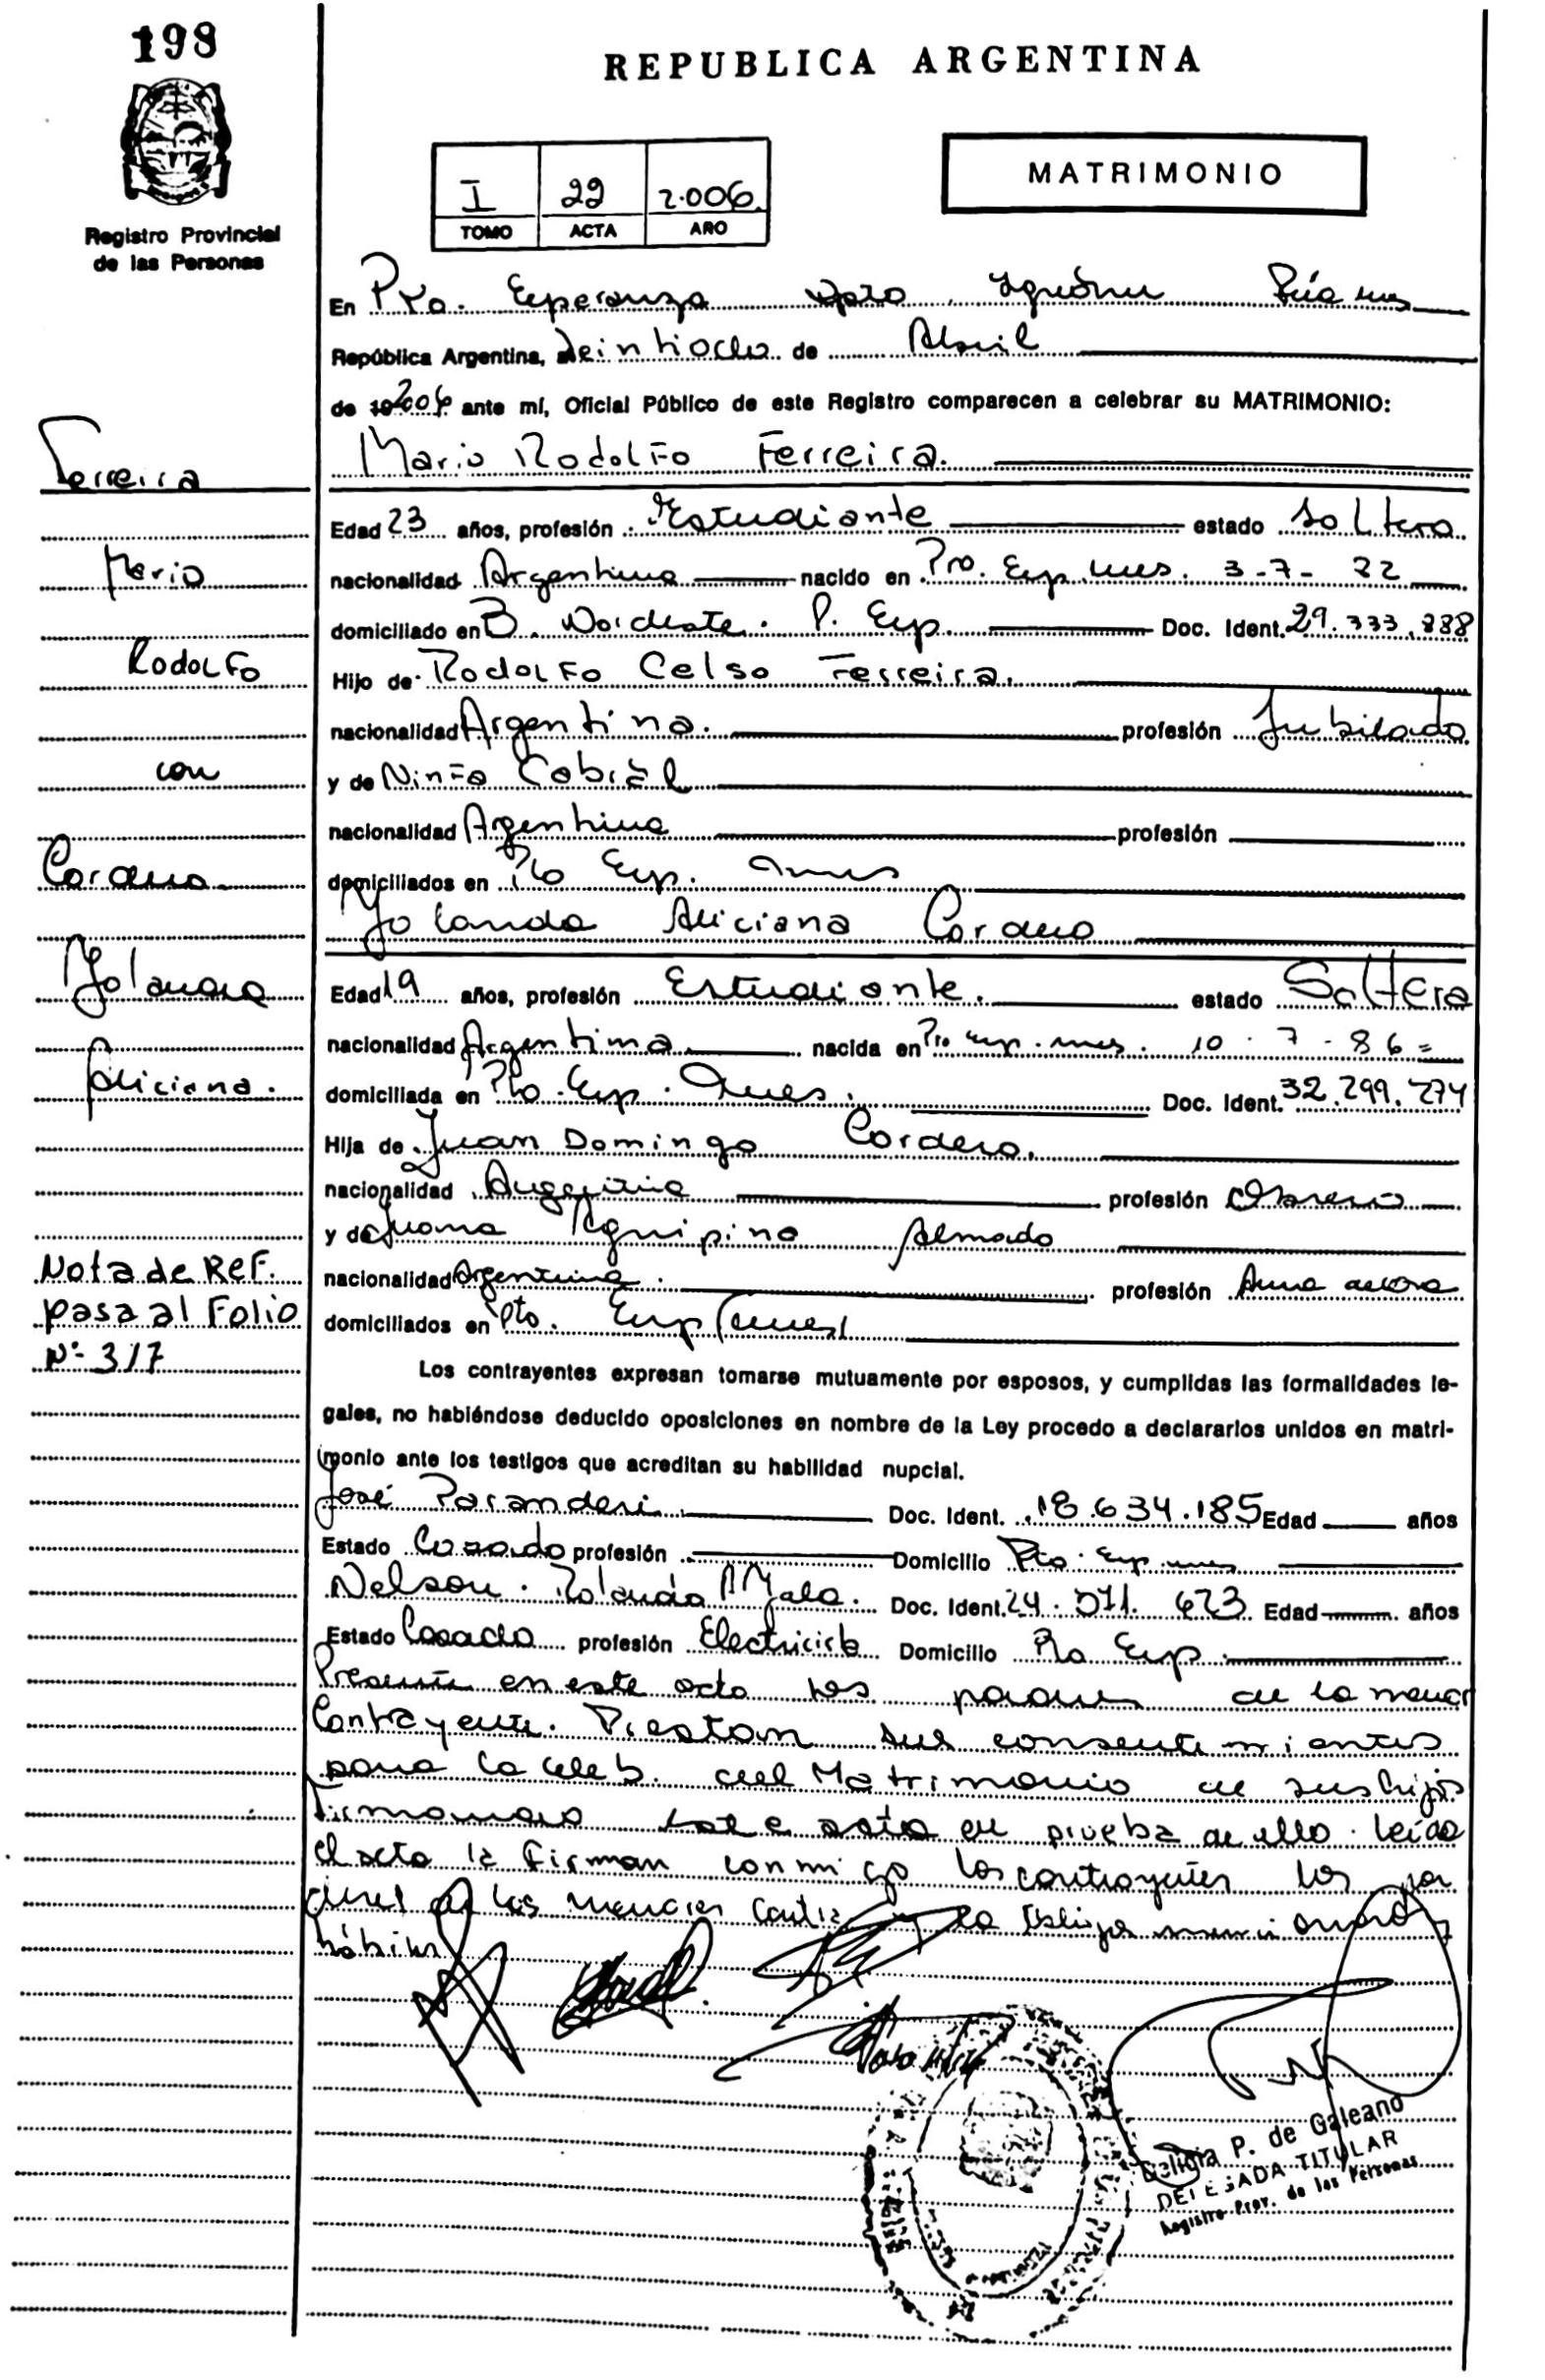 198
REPUBLICA ARGENTINA
MATRIMONIO
I 22 2.006.
TOMO ACTA AÑO
Registro Provincial
de las Personas
En Pto. Esperanza Dpto. Iguazú
República Argentina, a veintiocho de Abril
de 19 2006 ante mí, Oficial Público de este Registro comparecen a celebrar su MATRIMONIO:
Mario Rodolfo Ferreira.
Edad 23 años, profesión Estudiante estado Soltero
nacionalidad Argentina nacido en Pto. Esp. Mnes. 3-7-82
domiciliado en B. Nordeste. P. Esp. Doc. Ident. 29.333.888
Hijo de Rodolfo Celso Ferreira.
nacionalidad Argentina. profesión Jubilado
y de Ninfa Cabral
nacionalidad Argentina profesión
domiciliados en Pto Esp. Mnes
Yolanda Aliciana Cordero
Edad 19 años, profesión Estudiante. estado Soltera
nacionalidad Argentina nacida en Pto Esp. Mnes. 10-7-86=
domiciliada en Pto. Esp. Mnes. Doc. Ident. 32.299.274
Hija de Juan Domingo Cordero.
nacionalidad Argentina profesión Obrero
y de Juana Agripina Almada
nacionalidad Argentina. profesión Ama de casa
domiciliados en Pto. Esp. Mnes
Los contrayentes expresan tomarse mutuamente por esposos, y cumplidas las formalidades le-
gales, no habiéndose deducido oposiciones en nombre de la Ley procedo a declararlos unidos en matri-
monio ante los testigos que acreditan su habilidad nupcial.
José Paranderi. Doc. Ident. 18.634.185 Edad años
Estado Casado profesión Domicilio Pto. Esp. Mnes
Nelson Rolando Ayala. Doc. Ident. 24.571.623 Edad años
Estado Casado profesión Electricista Domicilio Pto Esp
Presente en este acto los padres de la menor
Contrayente. Prestan sus consentimientos
para la celeb. del Matrimonio de sus hijos
Firmando este acto en prueba de ello. Leído
el acta la Firman conmigo los contrayentes los pa
dres de los menores
hábiles
Ferreira
Mario
Rodolfo
con
Cordero
Yolanda
Aliciana.
Nota de Ref.
pasa al Folio
Nº 317
P. de Galeano
DELEGADA TITULAR
Registro Prov. de las Personas